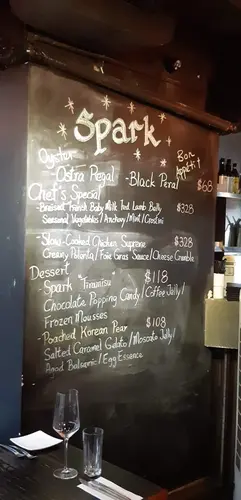 Spark
Oyster
Bon
Appétit
-Ostra Regal -Black Peral $68
Chef's Special
-Braised French Baby Milk Fed Lamb Belly $328
Seasonal Vegetables / Anchovy / Mint / Crostini
-Slow-Cooked Chicken Supreme $328
Creamy Polenta / Foie Gras Sauce / Cheese Crumble
Dessert
- Spark "Tiramisu" $118
Chocolate Popping Candy / Coffee Jelly /
Frozen Mousses
- Poached Korean Pear $108
Salted Caramel Gelato / Moscato Jelly /
Aged Balsamic / Egg Essence